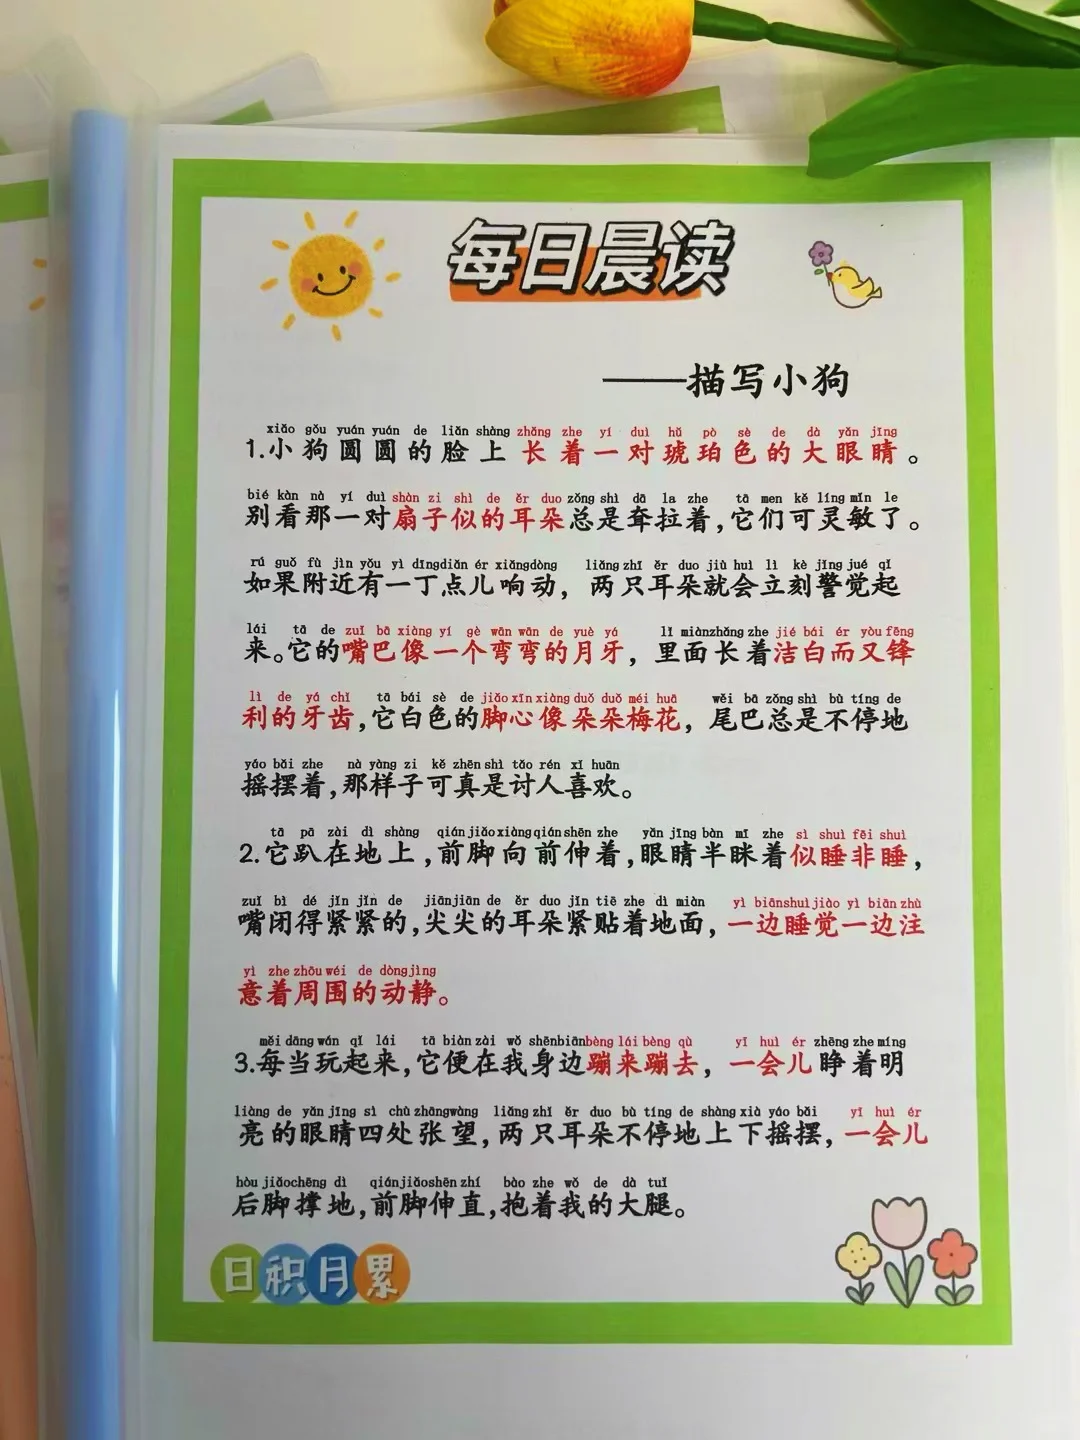 每日晨读
——描写小狗
xiǎo gǒu yuán yuán de liǎn shàng zhǎng zhe yí duì hǔ pò sè de dà yǎn jīng
1.小狗圆圆的脸上长着一对琥珀色的大眼睛。
bié kàn nà yí duì shàn zi shì de ěr duo zǒng shì dā la zhe tā men kě líng mǐn le
别看那一对扇子似的耳朵总是耷拉着,它们可灵敏了。
rú guǒ fù jìn yǒu yì dīngdiǎn ér xiǎngdòng liǎng zhī ěr duo jiù huì lì kè jǐng jué qǐ
如果附近有一丁点儿响动,两只耳朵就会立刻警觉起
lái tā de zuǐ bā xiàng yí gè wān wān de yuè yá lǐ miànzhǎng zhe jié bái ér yòu fēng
来。它的嘴巴像一个弯弯的月牙,里面长着洁白而又锋
lì de yá chǐ tā bái sè de jiǎo xīn xiàng duǒ duǒ méi huā wěi bā zǒng shì bù tíng de
利的牙齿,它白色的脚心像朵朵梅花,尾巴总是不停地
yáo bǎi zhe nà yàng zi kě zhēn shì tǎo rén xǐ huān
摇摆着,那样子可真是讨人喜欢。
tā pā zài dì shàng qián jiǎo xiàng qián shēn zhe yǎn jīng bàn mī zhe sì shuì fēi shuì
2.它趴在地上,前脚向前伸着,眼睛半眯着似睡非睡,
zuǐ bì dé jǐn jǐn de jiānjiān de ěr duo jǐn tiē zhe dì miàn yì biānshuì jiào yì biān zhù
嘴闭得紧紧的,尖尖的耳朵紧贴着地面,一边睡觉一边注
yì zhe zhōu wéi de dòng jìng
意着周围的动静。
měi dāng wán qǐ lái tā biàn zài wǒ shēnbiān bèng lái bèng qù yī huì ér zhēng zhe míng
3.每当玩起来,它便在我身边蹦来蹦去,一会儿睁着明
liàng de yǎn jīng sì chù zhāngwàng liǎng zhī ěr duo bù tíng de shàng xià yáo bǎi yī huì ér
亮的眼睛四处张望,两只耳朵不停地上下摇摆,一会儿
hòu jiǎochēng dì qiánjiǎoshēn zhí bào zhe wǒ de dà tuǐ
后脚撑地,前脚伸直,抱着我的大腿。
日积月累